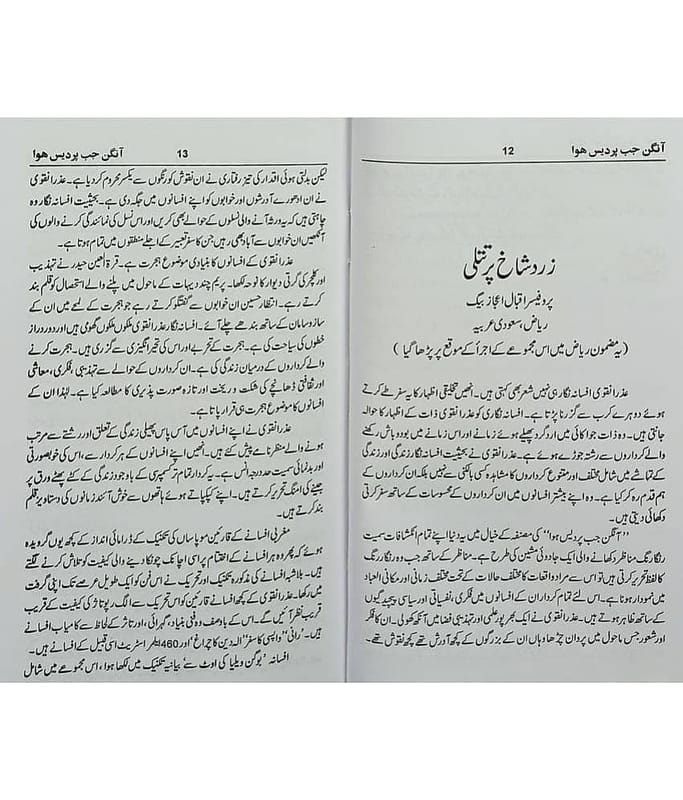 آنگن جب پردیس ہوا 12
زرد شاخ پر تتلی
پروفیسر اقبال اعجاز بیگ
ریاض، سعودی عربیہ
(یہ مضمون ریاض میں اس مجموعے کے اجراء کے موقع پر پڑھا گیا)
عذرا نقوی افسانہ نگار ہی نہیں شعر بھی کہتی ہیں۔ انھیں تخلیقی اظہار کا یہ سفر طے کرتے
ہوئے دوہرے کرب سے گزرنا پڑتا ہے۔ افسانہ نگاری کو عذرا نقوی ذات کے اظہار کا حوالہ
جانتی ہیں۔ وہ ذات جو اکائی میں ارد گرد پھیلے ہوئے زمانے اور اس زمانے میں بود و باش رکھنے
والے کرداروں سے رشتہ جوڑے ہوئے ہے۔ عذرا نقوی نے بحیثیت افسانہ نگار زندگی اور زندگی
کے تماشے میں شامل مختلف اور متنوع کرداروں کا مشاہدہ کسی بالکنی سے نہیں بلکہ ان کرداروں کے
ہم قدم رہ کر کیا ہے۔ وہ اپنے بیشتر افسانوں میں ان کرداروں کے محسوسات کے ساتھ سفر کرتی
دکھائی دیتی ہیں۔
"آنگن جب پردیس ہوا" کی مصنفہ کے خیال میں یہ دنیا اپنے تمام انکشافات سمیت
رنگا رنگ مناظر دکھانے والی ایک جادوئی مشین کی طرح ہے۔ مناظر کے ساتھ جب وہ رنگا رنگ
کا لفظ تحریر کرتی ہیں تو اس سے مراد واقعات کا مختلف حالات کے تحت مختلف زمانی اور مکانی ابعاد
میں نمودار ہونا ہے۔ اس لئے تمام کرداران کے افسانوں میں فکری، نفسیاتی اور سیاسی پیچیدگیوں
کے ساتھ ظاہر ہوتے ہیں۔ عذرا نقوی نے ایک بھرپور علمی اور تہذیبی فضا میں آنکھ کھولی۔ ان کا فکر
اور شعور جس ماحول میں پروان چڑھا وہاں ان کے بزرگوں کے کچھ آدرش تھے کچھ نقوش تھے۔
13 آنگن جب پردیس ہوا
لیکن بدلتی ہوئی اقدار کی تیز رفتاری نے ان نقوش کو رنگوں سے یکسر محروم کر دیا ہے۔ عذرا نقوی
نے ان ادھورے آدرشوں اور خوابوں کو اپنے افسانوں میں جگہ دی ہے۔ بحیثیت افسانہ نگار وہ
چاہتی ہیں کہ یہ ورثہ آنے والی نسلوں کے حوالے بھی کریں اور اس نسل کی نمائندگی کرنے والوں کی
آنکھیں ان خوابوں سے آباد بھی رہیں جن کا سفر تعبیر کے اجلے منطقوں میں تمام ہوتا ہے۔
عذرا نقوی کے افسانوں کا بنیادی موضوع ہجرت ہے۔ قرۃ العین حیدر نے تہذیب
اور کلچر کی گرتی دیوار کا نوحہ لکھا۔ پریم چند دیہات کے ماحول میں پلنے والے استحصال کو قلم بند
کرتے رہے۔ انتظار حسین ان خوابوں سے گفتگو کرتے رہے جو ہجرت کے لمحے میں ان کے
ساز و سامان کے ساتھ بندھے چلے آئے۔ افسانہ نگار عذرا نقوی ملکوں ملکوں گھومی ہیں اور دور دراز
خطوں کی سیاحت کی ہے۔ ہجرت کے تجربے اور اس کی تحیر انگیزی سے گزری ہیں۔ ہجرت کرنے
والے کرداروں کے درمیان زندگی کی ہے۔ ان کرداروں کے حوالے سے تہذیبی، فکری، معاشی
اور ثقافتی ڈھانچے کی شکست و ریخت اور تازہ صورت پذیری کا مطالعہ کیا ہے۔ لہٰذا ان کے
افسانوں کا موضوع ہجرت ہی قرار پاتا ہے۔
عذرا نقوی نے اپنے افسانوں میں آس پاس پھیلی زندگی کے تعلق اور رشتے سے مرتب
ہونے والے منظر نامے پیش کئے ہیں۔ انھیں اپنے افسانوں کے ہر کردار سے، اس کی خوبصورتی
اور بدنمائی سمیت حد درجہ انس ہے۔ یہ کردار تمام تر کسمپرسی کے باوجود زندگی کے کٹے پھٹے ورق پر
جینے کی امنگ تحریر کرتے ہیں۔ اپنے کپکپاتے ہوئے ہاتھوں سے خوش آئند زمانوں کی دستاویز قلم
بند کرتے ہیں۔
مغربی افسانے کے قارئین موپاساں کی تکنیک کے ڈرامائی انداز کے کچھ یوں گرویدہ
ہوئے کہ پھر وہ ہر افسانے کے اختتام پر اسی اچانک چونکا دینے والی کیفیت کو تلاش کرنے لگتے
ہیں۔ بلاشبہ افسانے کی مذکورہ تکنیک اور تحریک نے اس فن کو ایک طویل عرصے تک اپنی گرفت
میں رکھا۔ عذرا نقوی کے کچھ افسانے قارئین کو اس تحریک سے الگ رہ تاثر کی کیفیت کے قریب
قریب نظر آئیں گے۔ اس کے باوصف وہ فنی بنیاد، گہرائی، اور تاثر کے لحاظ سے کامیاب افسانے
ہیں۔ 'رانی' 'واپسی کا سفر' 'الہ دین کا چراغ' اور 460 ایلمر اسٹریٹ اسی قبیل کے افسانے ہیں۔
افسانہ 'بوگن ویلیا کی اوٹ سے' بیانیہ تکنیک میں لکھا ہوا، اس مجموعے میں شامل